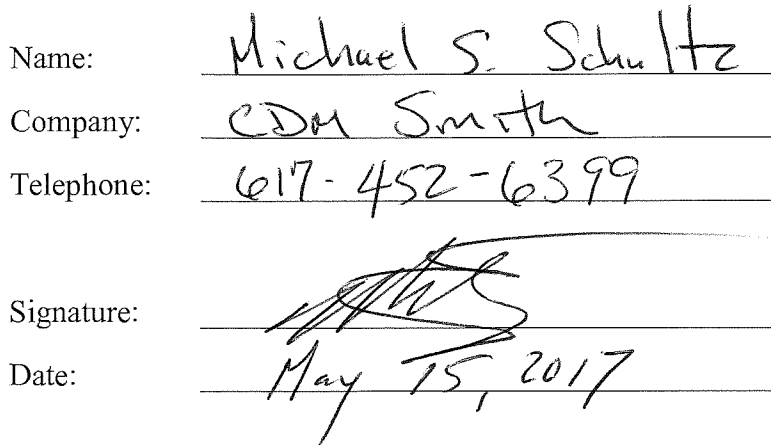 Name: Michael S. Schultz
Company: CDM Smith
Telephone: 617-452-6399
Signature:
Date: May 15, 2017